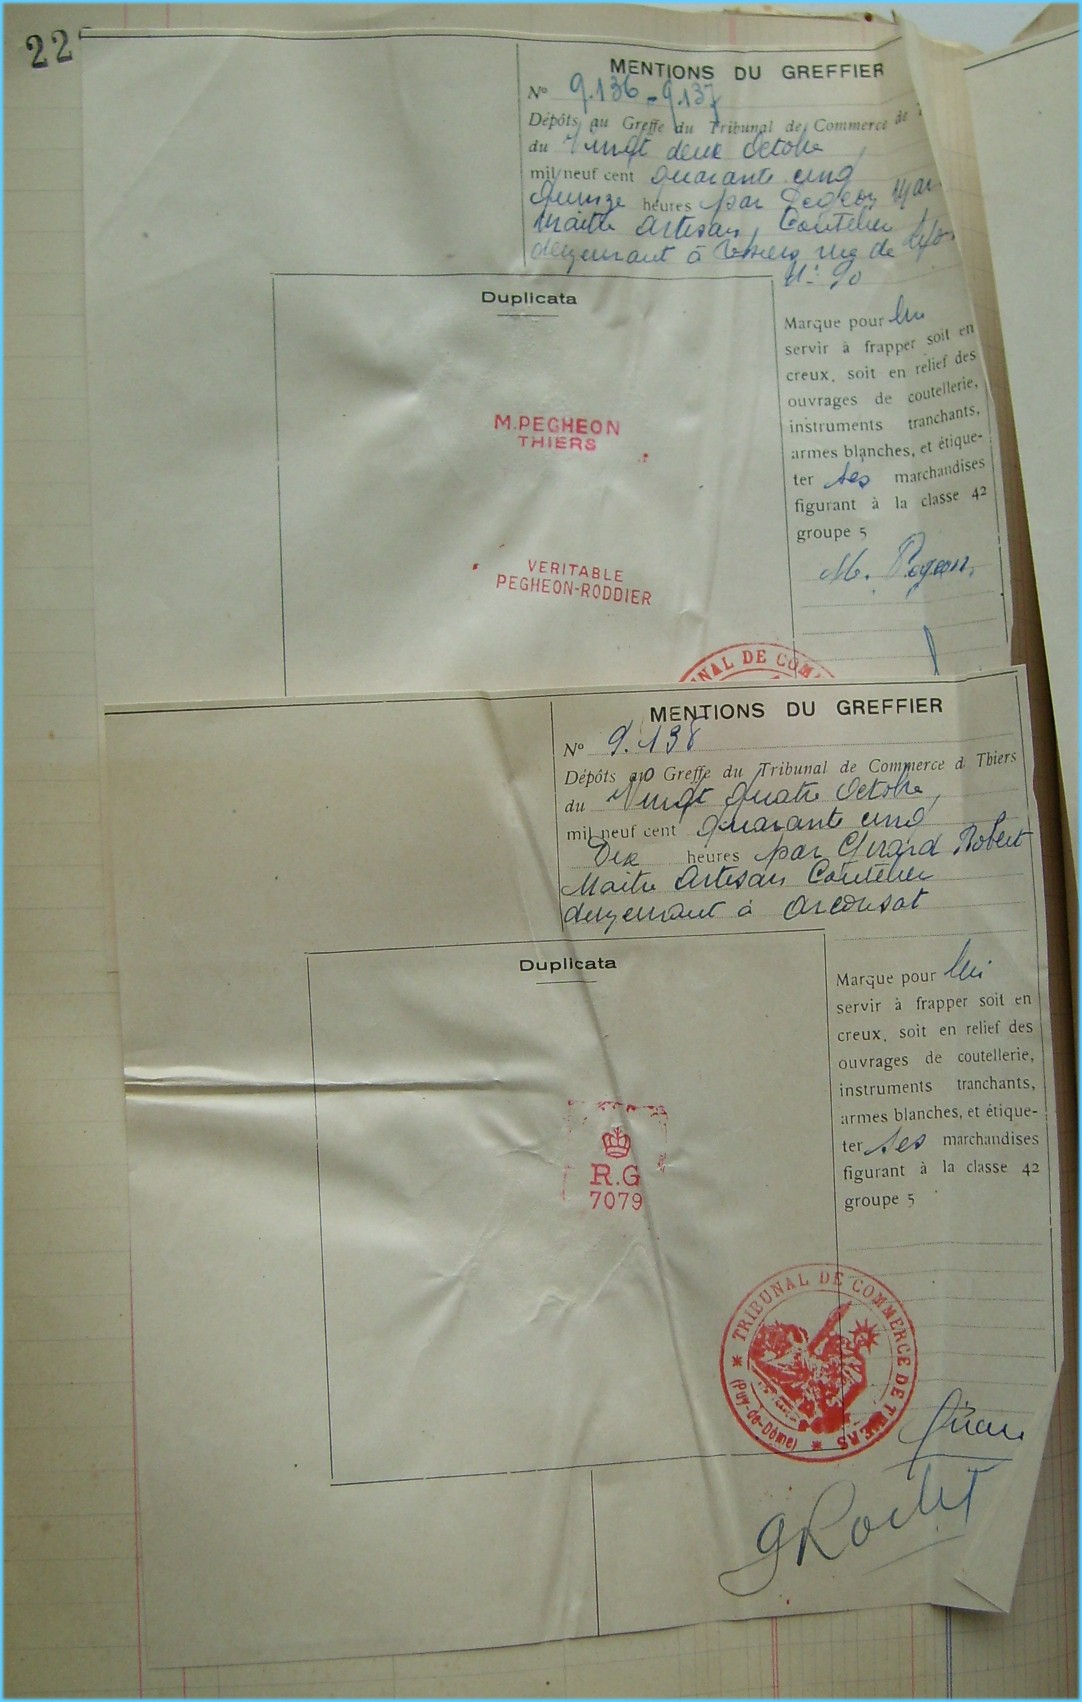 22
MENTIONS DU GREFFIER
N° 9.136-9.137
Dépôts au Greffe du Tribunal de Commerce de
du Vingt deux Octobre
mil neuf cent quarante cinq
quinze heures par
Maitre Artisan Coutelier
demeurant à Thiers rue de
N° 90
Duplicata
Marque pour lui
servir à frapper soit en
creux, soit en relief des
ouvrages de coutellerie,
instruments tranchants,
armes blanches, et étique-
ter ses marchandises
figurant à la classe 42
groupe 5
M.PEGHEON
THIERS
VERITABLE
PEGHEON-RODDIER
NAL DE COM
MENTIONS DU GREFFIER
N° 9.138
Dépôts au Greffe du Tribunal de Commerce d Thiers
du Vingt quatre Octobre,
mil neuf cent quarante cinq
Dix heures par Girard Robert
Maitre Artisan Coutelier
demeurant à Arconsat
Duplicata
Marque pour lui
servir à frapper soit en
creux, soit en relief des
ouvrages de coutellerie,
instruments tranchants,
armes blanches, et étique-
ter ses marchandises
figurant à la classe 42
groupe 5
R.G
7079
TRIBUNAL DE COMMERCE DE THIERS
(Puy-de-Dôme)